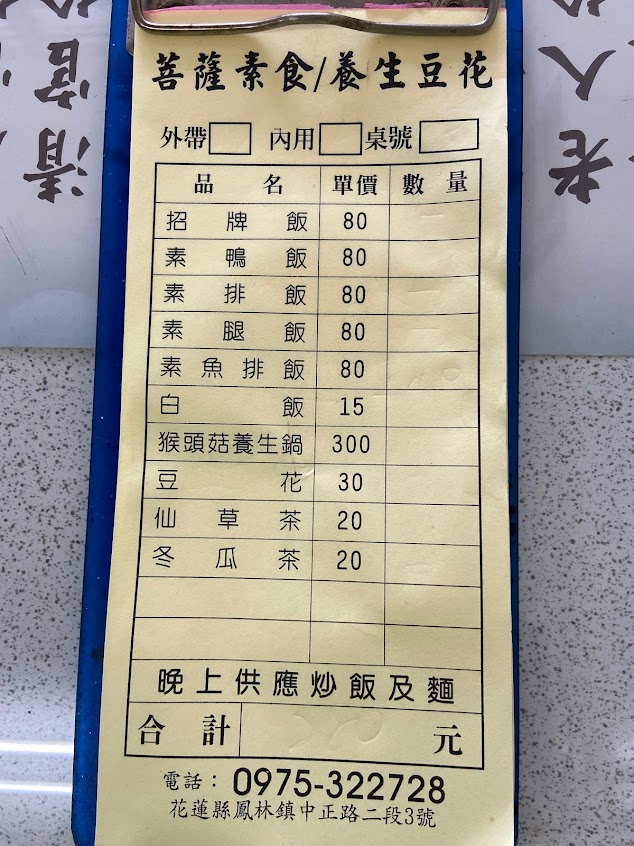 菩薩素食/養生豆花
外帶 內用 桌號
品名 單價 數量
招牌飯 80
素鴨飯 80
素排飯 80
素腿飯 80
素魚排飯 80
白飯 15
猴頭菇養生鍋 300
豆花 30
仙草茶 20
冬瓜茶 20
晚上供應炒飯及麵
合計 元
電話：0975-322728
花蓮縣鳳林鎮中正路二段3號
老人
清官